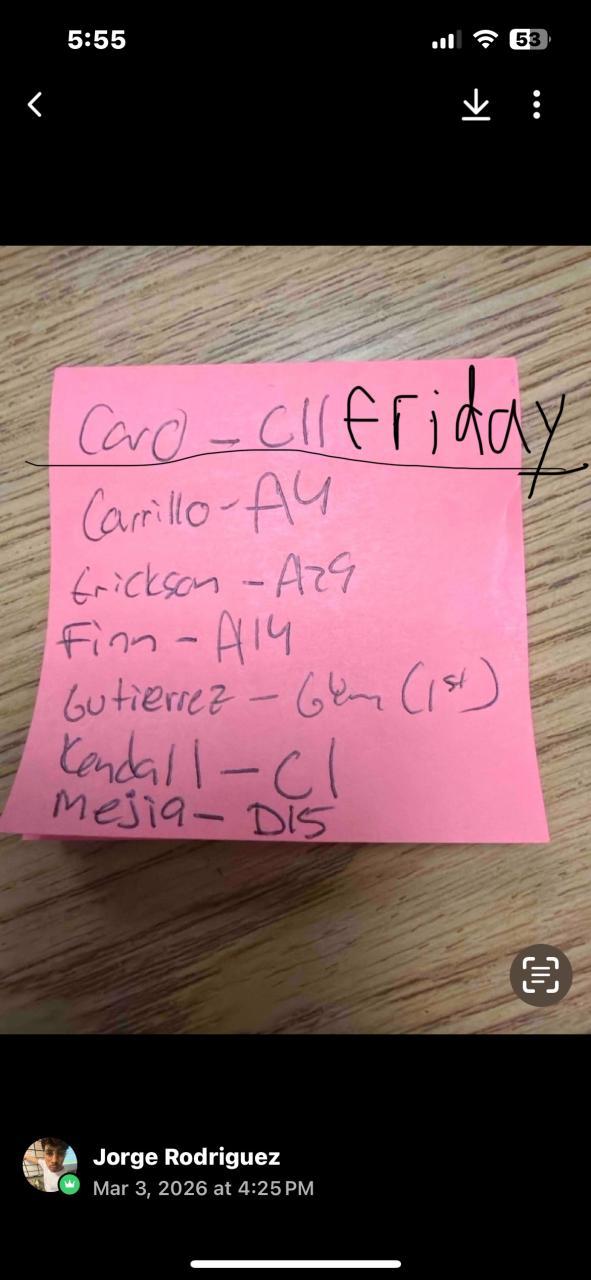 5:55
53
Caro - C11 friday
Carrillo - A4
Erickson - A29
Finn - A14
Gutierrez - Gym (1st)
Kendall - C1
Mejia - D15
Jorge Rodriguez
Mar 3, 2026 at 4:25 PM